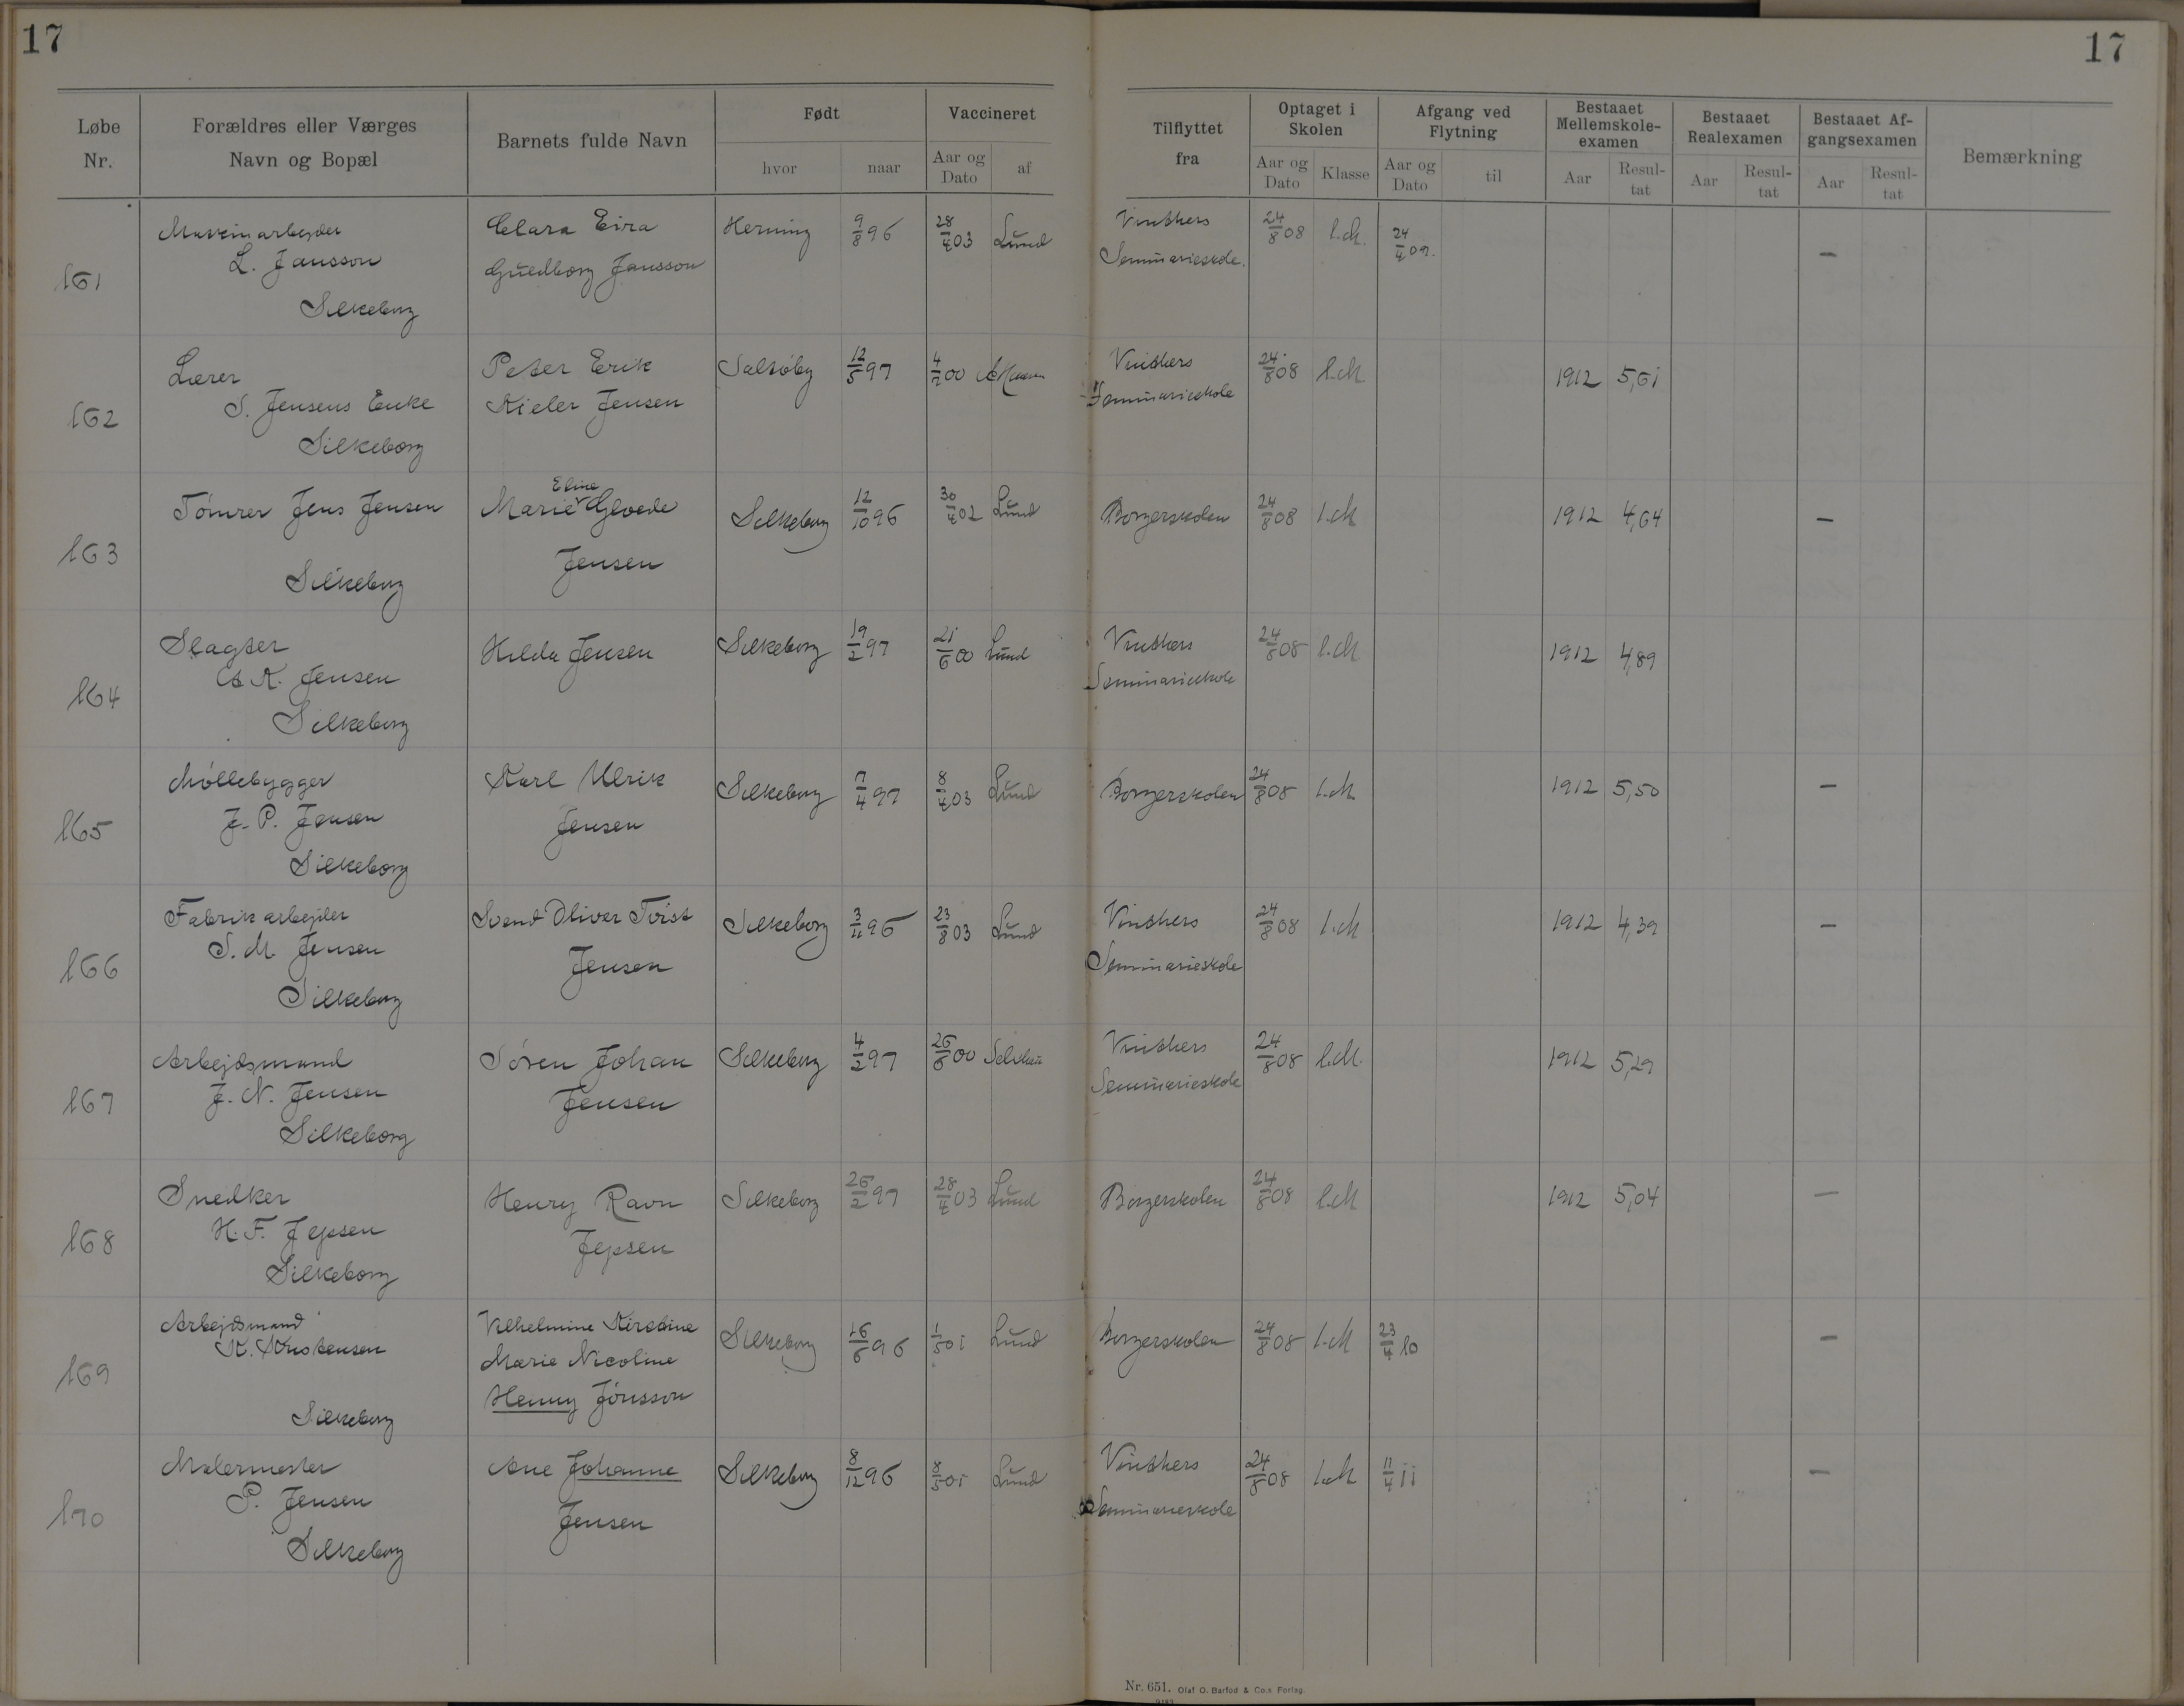 17
17
Løbe Nr.
Forældres eller Værges Navn og Bopæl
Barnets fulde Navn
Født
hvor
naar
Vaccineret
Aar og Dato
af
Tilflyttet fra
Optaget i Skolen
Aar og Dato
Klasse
Afgang ved Flytning
Aar og Dato
til
Bestaaet Mellemskole-examen
Aar
Resul-tat
Bestaaet Realexamen
Aar
Resul-tat
Bestaaet Af-gangsexamen
Aar
Resul-tat
Bemærkning
161 Maskinarbejder L. Jansson Silkeborg Clara Eira Guedborg Jansson Herning 9/8 96 28/4 03 Lund Vinthers Seminarieskole. 24/8 08 1.M. 24/4 09. —
162 Lærer S. Jensens Enke Silkeborg Peter Erik Kieler Jensen 12/5 97 4/7 00 Vinthers Seminarieskole 24/8 08 1.M 1912 5,61
163 Tømrer Jens Jensen Silkeborg Marie Eline Glvede Jensen Silkeborg 12/10 96 30/4 02 Lund Borgerskolen 24/8 08 1.M 1912 4,64 —
164 Slagter K. Jensen Silkeborg Hilda Jensen Silkeborg 19/2 97 21/6 00 Lund Vinthers Seminarieskole 24/8 08 1.M 1912 4,89
165 Møllebygger J. P. Jensen Silkeborg Karl Ulrik Jensen Silkeborg 7/4 97 8/4 03 Lund Borgerskolen 24/8 08 1.M 1912 5,50 —
166 Fabrikarbejder S. M. Jensen Silkeborg Svend Oliver Tvist Jensen Silkeborg 3/11 96 23/8 03 Lund Vinthers Seminarieskole 24/8 08 1.M 1912 4,39 —
167 Arbejdsmand J. N. Jensen Silkeborg Søren Johan Jensen Silkeborg 4/2 97 26/6 00 Vinthers Seminarieskole 24/8 08 1.M. 1912 5,29
168 Snedker H. F. Jepsen Silkeborg Henry Ravn Jepsen Silkeborg 26/2 97 28/4 03 Lund Borgerskolen 24/8 08 1.M 1912 5,04 —
169 Arbejdsmand K. Kristensen Silkeborg Vilhelmine Kirstine Marie Nicoline Henny Jönsson Silkeborg 16/6 96 1/5 01 Lund Borgerskolen 24/8 08 1.M 23/4 10 —
170 Malermester P. Jensen Silkeborg Ane Johanne Jensen Silkeborg 8/12 96 8/5 01 Lund Vinthers Seminarieskole 24/8 08 1.M 11/4 11 —
Nr. 651. Olaf O. Barfod & Co.s Forlag.